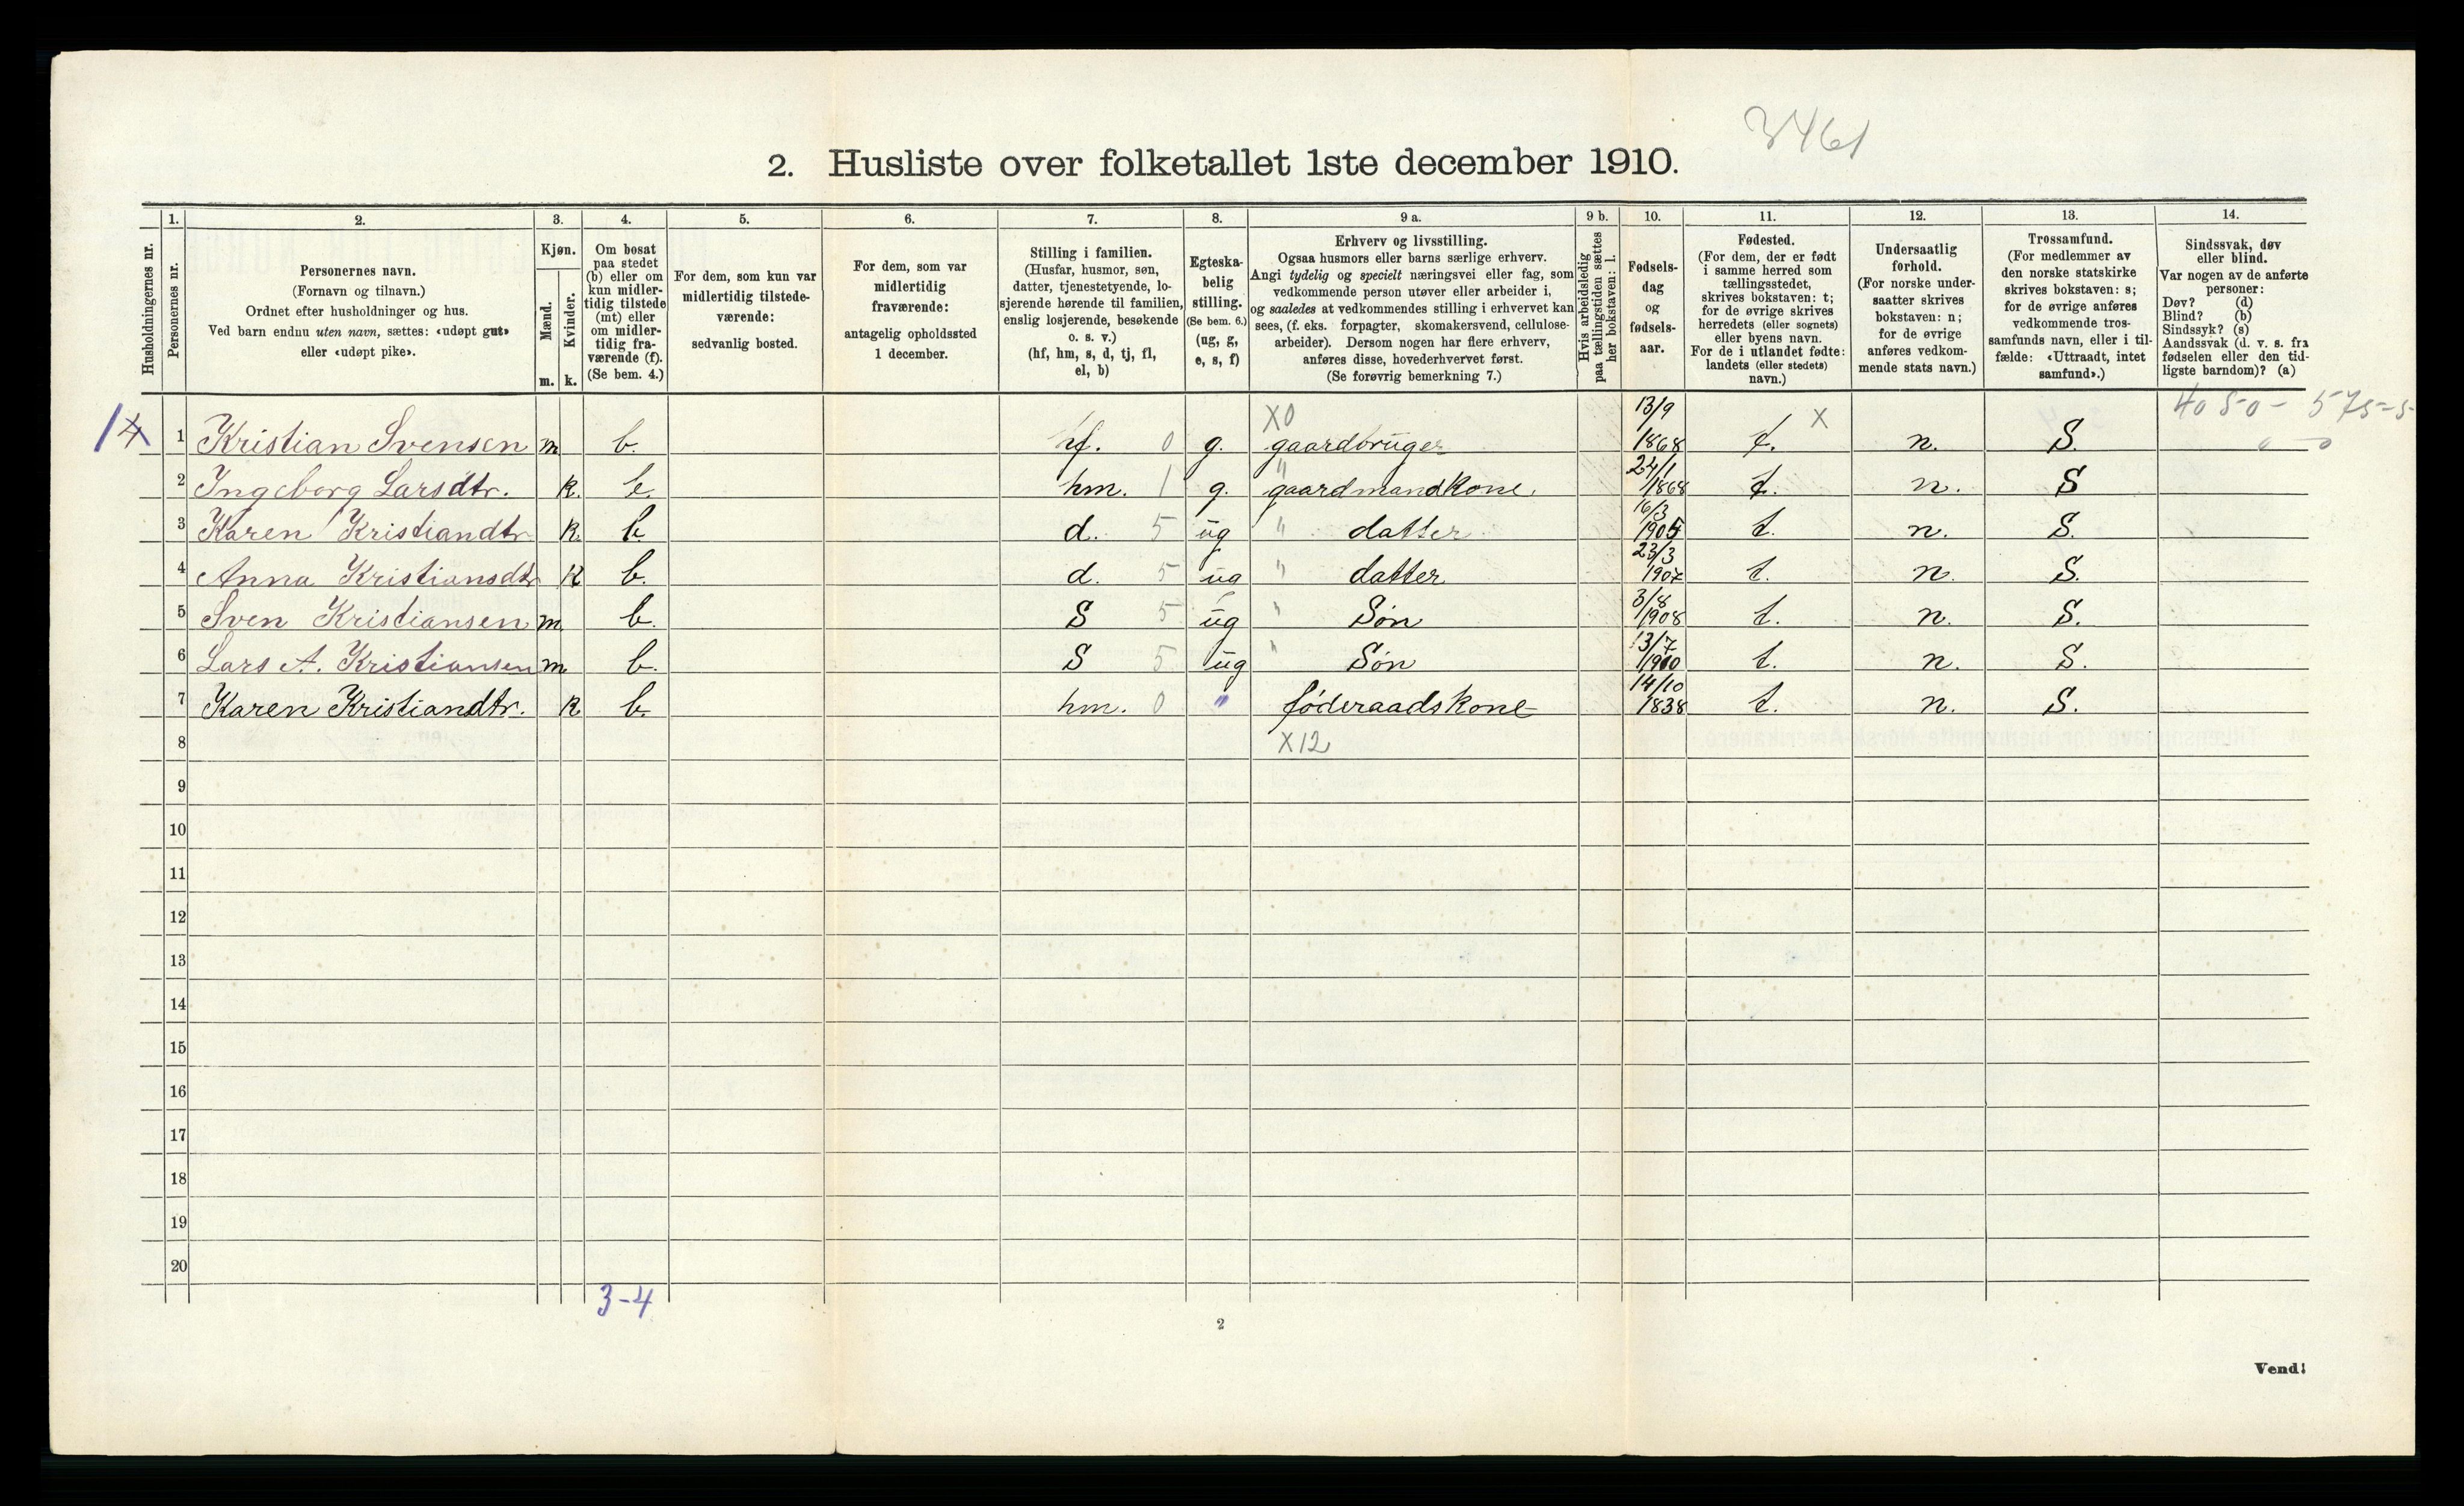 3461
2. Husliste over folketallet 1ste december 1910.
1. 2. 3. 4. 5. 6. 7. 8. 9 a. 9 b. 10. 11. 12. 13. 14.
Husholdningernes nr.
Personernes nr.
Personernes navn.
(Fornavn og tilnavn.)
Ordnet efter husholdninger og hus.
Ved barn endnu uten navn, sættes: «udøpt gut»
eller «udøpt pike».
Kjøn.
Mænd.
Kvinder.
m. k.
Om bosat
paa stedet
(b) eller om
kun midler-
tidig tilstede
(mt) eller
om midler-
tidig fra-
værende (f).
(Se bem. 4.)
For dem, som kun var
midlertidig tilstede-
værende:
sedvanlig bosted.
For dem, som var
midlertidig
fraværende:
antagelig opholdssted
1 december.
Stilling i familien.
(Husfar, husmor, søn,
datter, tjenestetyende, lo-
sjerende hørende til familien,
enslig losjerende, besøkende
o. s. v.)
(hf, hm, s, d, tj, fl,
el, b)
Egteska-
belig
stilling.
(Se bem. 6.)
(ug, g,
e, s, f)
Erhverv og livsstilling.
Ogsaa husmors eller barns særlige erhverv.
Angi tydelig og specielt næringsvei eller fag, som
vedkommende person utøver eller arbeider i,
og saaledes at vedkommendes stilling i erhvervet kan
sees, (f. eks. forpagter, skomakersvend, cellulose-
arbeider). Dersom nogen har flere erhverv,
anføres disse, hovederhvervet først.
(Se forøvrig bemerkning 7.)
Hvis arbeidsledig
paa tællingstiden sættes
her bokstaven: l.
Fødsels-
dag
og
fødsels-
aar.
Fødested.
(For dem, der er født
i samme herred som
tællingsstedet,
skrives bokstaven: t;
for de øvrige skrives
herredets (eller sognets)
eller byens navn.
For de i utlandet fødte:
landets (eller stedets)
navn.)
Undersaatlig
forhold.
(For norske under-
saatter skrives
bokstaven: n;
for de øvrige
anføres vedkom-
mende stats navn.)
Trossamfund.
(For medlemmer av
den norske statskirke
skrives bokstaven: s;
for de øvrige anføres
vedkommende tros-
samfunds navn, eller i til-
fælde: «Uttraadt, intet
samfund».)
Sindssvak, døv
eller blind.
Var nogen av de anførte
personer:
Døv? (d)
Blind? (b)
Sindssyk? (s)
Aandssvak (d. v. s. fra
fødselen eller den tid-
ligste barndom)? (a)
X0 13/9 X
1 Kristian Svensen m b. hf. 0 g. gaardbruger 1868 t. n. S.
2 Ingeborg Larsdtr. k. b. hm. 1 g. " gaardmandkone. 24/1 1868 t. n. S
3 Karen Kristiandtr k. b d. 5 ug " datter 16/3 1905 t. n. S.
4 Anna Kristiansdtr k b. d. 5 ug " datter 23/3 1907 t. n. S.
5 Sven Kristiansen m b. S 5 ug " Søn 3/8 1908 t. n. S.
6 Lars A. Kristiansen m b. S 5 ug " Søn 13/7 1910 t. n. S.
7 Karen Kristiandtr. k b. hm. 0 " føderaadskone 14/10 1838 t. n. S.
8 X12
9
10
11
12
13
14
15
16
17
18
19
20
3-4
2
Vend!